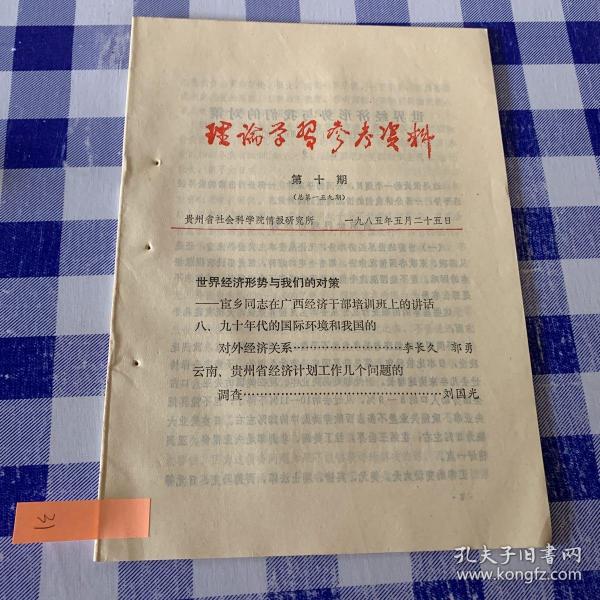 理论学习参考资料
第十期
(总第一五九期)
贵州省社会科学院情报研究所 一九八五年五月二十五日
世界经济形势与我们的对策
——宦乡同志在广西经济干部培训班上的讲话
八、九十年代的国际环境和我国的
对外经济关系……………………李长久 郭勇
云南、贵州省经济计划工作几个问题的
调查……………………………………刘国光
31
孔夫子旧书网
www.kongfz.com